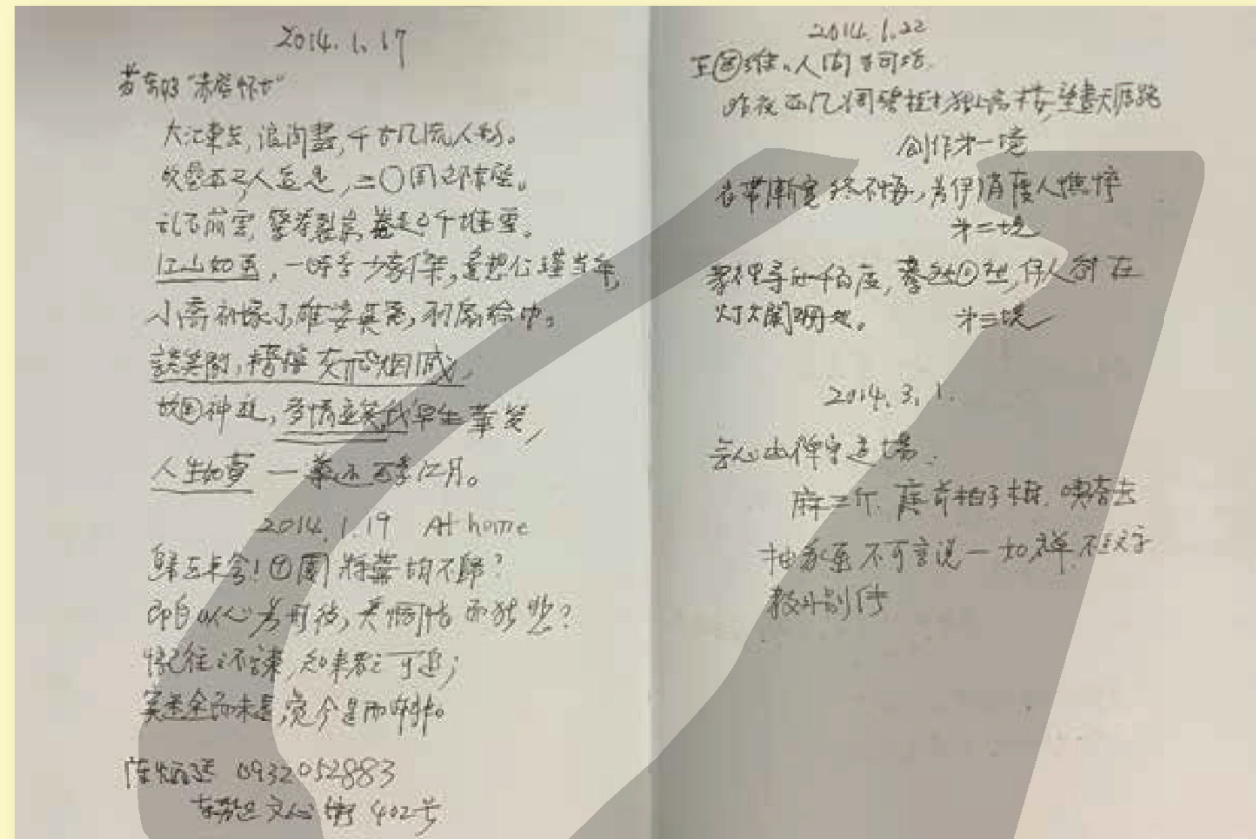 2014.1.17
苏东坡"赤壁怀古"
大江東去，浪淘盡，千古風流人物。
故壘西边人道是，三〇周郎赤壁。
乱石崩雲，驚濤裂岸，卷起千堆雪。
江山如画，一時多少豪傑，遙想公瑾当年，
小喬初嫁了雄姿英发，羽扇綸巾。
談笑間，檣櫓灰飞烟灭，
故国神遊，多情应笑我早生華发，
人生如夢 一尊还酹江月。
2014.1.19 At home
歸去来兮！田園将蕪胡不歸？
即自以心为形役，奚惆怅而独悲？
悟已往之不谏，知来者之可追；
今是而昨非。
0932052883
文心街 402号
2014.1.22
王国维。人间词话
昨夜西风凋碧树，独上高楼，望盡天涯路
创作第一境
衣带漸宽终不悔，为伊消瘦人憔悴
第二境
眾里尋他千百度，驀然回首，那人却在
灯火闌珊处。 第三境
2014.3.1.
麻三斤 庭前柏子樹 喫茶去
不可言说 一如禅 不立文字
教外别传